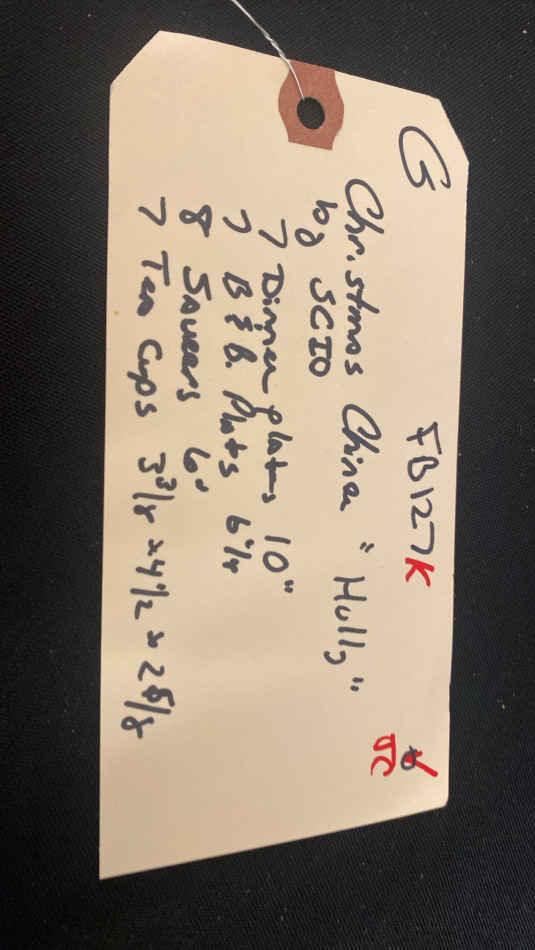 G FB127K
Christmas China "Holly"
by SCIO
7 Dinner plates 10"
7 B & B. Plats 6 1/4
8 Saucers 6"
7 Tea Cups 3 3/8 x 4 1/2 x 2 5/8
JC